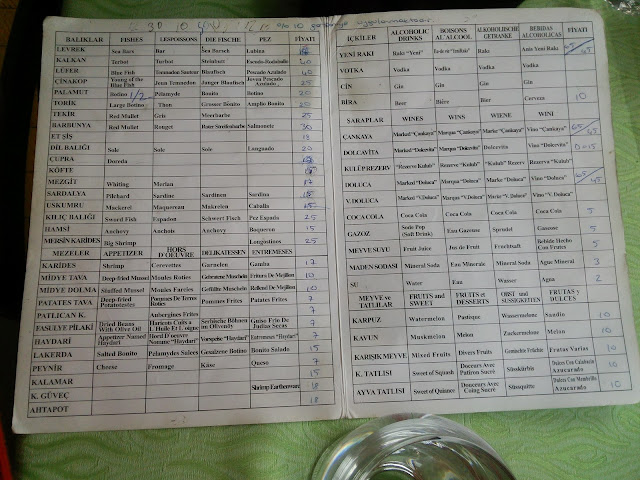 % 10
BALIKLAR FISHES LESPOISSONS DIE FISCHE PEZ FİYATI
LEVREK Sea Bars Bar Sea Barsch Lubina
KALKAN Turbot Turbot Steinbutt 40
LÜFER Blue Fish Blaufisch Pescado Azulado 40
ÇİNAKOP Young of the Blue Fish Jeun Tennedon Junger Blaufisch Joven Pescado Azulado 25
PALAMUT Botino 1/2 Pelamyde Bonito Botino 20
TORİK Large Botino Thon Grosser Bonito Amplio Bonito 20
TEKİR Red Mullet Gris Meerbarbe 25
BARBUNYA Red Mullet Rouget Salmonete 30
ET ŞİŞ 13
DİL BALIĞI Sole Sole Lenguado 20
ÇUPRA Doreda
KÖFTE
MEZGİT Whiting Merlan
SARDALYA Pilchard Sardine Sardinen Sardina
USKUMRU Mackerel Maquereau Makrelen Caballa
KILIÇ BALIĞI Sword Fish Espadon Schwert Fisch Pez Espada 25
HAMSİ Anchovy Anchois Anchovy Boqueron 15
MERSİN KARİDES Big Shrimp Longostinos 25
MEZELER APPETIZER HORS D'OEUVRE DELIKAIESSEN ENTREMESES
KARİDES Shrimp Crevettes Garnelen Gamba
MİDYE TAVA Deep-fried Mussel Moules Roties Gebratene Muscheln Fritura De Mejillon 10
MİDYE DOLMA Stuffed Mussel Moules Farcies Gefüllte Muscheln Relleno De Mejillon 10
PATATES TAVA Deep-fried Potatotestes Pommes De Terres Roties Pommes Frites Patates Frites 7
PATLICAN K. Aubergines Frites 7
FASULYE PİLAKİ Dried Beans With Olive Oil Haricots Cuits a L'Huile Et Longue Serbische Böhnen im Olivenöly Guiso Frio De Judias Secas 7
HAYDARİ Appetizer Named "Haydari" Hord D'oeuvre Nomme "Haydari" Vorspeise "Haydari" Entremeses "Haydari" 7
LAKERDA Salted Bonito Pelamydes Salees Gesalzene Botino Bonito Salado 15
PEYNİR Cheese Fromage Käse Queso 7
KALAMAR 15
K. GÜVEÇ Shrimp Earthenware 18
AHTAPOT 18
İÇKİLER ALCOHOLIC DRINKS BOISONS AL'ALCOOL ALKOHOLISCHE GETRANKE BEBIDAS ALCOHOLICAS FİYATI
YENİ RAKI Raku "Yeni" Raki Anis Yeni Raki 65 45
VOTKA Vodka Vodka Vodka Vodka
CİN Gin Gin Gin Gin
BİRA Beer Bière Bier Cerveza 10
ŞARAPLAR WINES WINS WIENE WINI
ÇANKAYA Marked "Çankaya" Marqua "Çankaya" Marke "Çankaya" Vino "Çankaya" 65
DOLCAVİTA Marked "Dolcevita" Marqua "Dolcevita" Dolcevita Vino "Dolcevita"
KULÜP REZERV "Rezerve Kulub" Reserve "Kulub" "Rezerve Kulub" Rezerva "Kulub"
DOLUCA Marke "Doluca" Marqua "Doluca" Marke "Doluca" Vino "Doluca" 65 45
V. DOLUCA Marke "V.Doluca" Marqua "V. Doluca" Marke "V. Doluca" Vino "V. Doluca"
COCA COLA Coca Cola Coca Cola Coca Cola Coca Cola 5
GAZOZ Sode Pop (Soft Drink) Eau Gazeuse Sprudel Gaseosa 5
MEYVE SUYU Fruit Juice Jus de Fruit Fruchtsaft Bebida Hecho Con Frutas 5
MADEN SODASI Mineral Soda Eau Minerale Mineral Soda Agua Mineral 3
SU Water Eau Wasser Agua 2
MEYVE ve TATLILAR FRUITS and SWEET FRUITS et DESSERTS OBST und SUSSIGKEITEN FRUTAS y DULCES
KARPUZ Watermelon Pasteque Wassermelone Sandio 10
KAVUN Muskmelon Melon Zuckermelone Melon 10
KARIŞIK MEYVE Mixed Fruits Divers Fruits Gemischte Früchte Frutas Varias 10
K. TATLISI Sweet of Squash Douceurs Avec Patiron Sucré Süsskürbis Dulce Con Calabacin Azucarado 10
AYVA TATLISI Sweet of Quince Douceurs Avec Coing Sucré Süssquitte Dulce Con Membrillo Azucarado 10